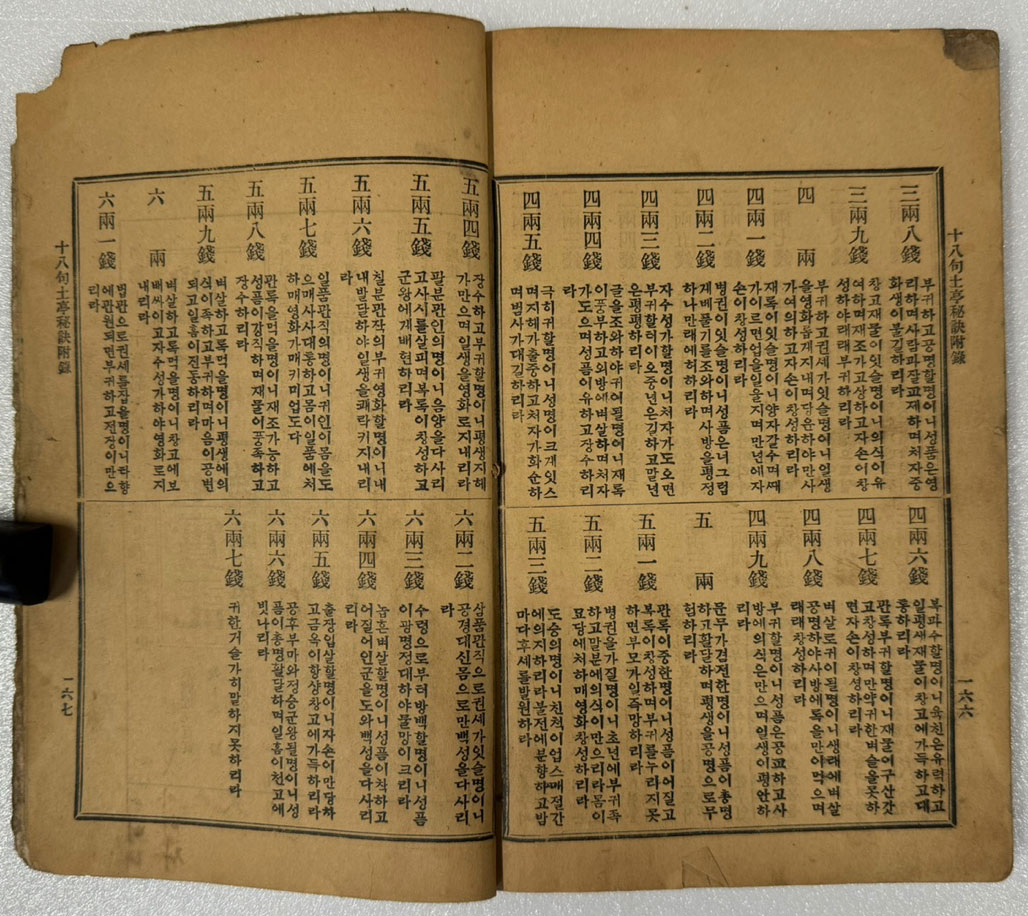 十八句土亭秘訣附錄
一六六
三兩八錢
부귀하고공명할명이니성품은영
리하며사람과잘교제하며처자중
화생이몿길하리라
三兩九錢
창고재물이잇슬명이니의식이유
여하며재조가고상하고자손이창
성하야래래부귀하리라
四兩
부귀하고권세가잇슬명이니일생
을영화롭게지내며당운하야만사
가여의하고자손이창성하리라
四兩一錢
재록이잇슬명이니양자갈수며째
가이르면업을일을지며만년에자
손이창성하리라
四兩二錢
병권이잇슬명이니성품은너그럽
게베풀기를조와하며사방을평정
하나만래에허하리라
四兩三錢
자수성가할명이니처자가도오면
부귀할터이오중년은길하고말년
은평평하리라
四兩四錢
글을조와하야귀여될명이니재록
이풍부하고외방에벼살하며처자
가도으며성품이유하고장수하리
라
四兩五錢
극히귀할명이니성명이크게잇스
며지혜가출중하고처자가화순하
며범사가대길하리라
四兩六錢
복과수할명이니육친은유력하고
일평생재물이창고에가득하고대
통하리라
四兩七錢
관록부귀할명이니재물여구산갓
고창성하며만약귀한벼슬을못하
면자손이창성하리라
四兩八錢
벼살로귀이될명이니생태에벼살
공명하야사방에록을만이먹으며
래래창성하리라
四兩九錢
부귀할명이니성품은공교하고사
방에의식은만으며일생이평안하
리라
五兩
문무가겸전한명이니성품이총명
하고활달하며평생을공명으로무
험하리라
五兩一錢
관록이중한명이니성품이어질고
복록이창성하며부귀를누리지못
하면부모가일즉망하리라
五兩二錢
병권을가질명이니초년에부귀족
하고말분에의식이만으리라몸이
묘당에처하매영화창성하리라
五兩三錢
도승의명이니친척이업스매절간
에의지하리라불전에분향하고밤
마다후세를발원하라
五兩四錢
장수하고부귀할명이니평생지혜
가만으며일생을영화로지내리라
五兩五錢
팔분관인의명이니음양을다사리
고사시를살피며복록이창성하고
군왕에게배현하리라
五兩六錢
칠분관작의부귀영화할명이니내
내발달하야일생을쾌락키지내리
라
五兩七錢
일품관직의명이니귀인이몸을도
으매사사대통하고몸이일품에처
하매영화가매키미업도다
五兩八錢
관록을먹을명이니재조가능하고
성품이강직하며재물이풍족하고
장수하리라
五兩九錢
벼살하고록먹을명이니평생에의
식이족하고부귀하며마음이공변
되고일홈이진동하리라
六兩
벼살하고록먹을명이니창고에보
배싸이고자수성가하야영화로지
내리라
六兩一錢
법관으로권세를잡을명이니타향
에관원되면부귀하고전장이만으
리라
六兩二錢
상품관직으로권세가잇슬명이니
공경대신몸으로만백성을다사리
라
六兩三錢
수령으로부터방백할명이니성품
이광명정대하야물망이크리라
六兩四錢
놉흔벼살할명이니성품이착하고
어질어인군을도와백성을다사리
리라
六兩五錢
출장입상할명이니자손이만당하
고금옥이항상창고에가득하리라
六兩六錢
공후부마와정승군왕될명이니성
품이총명활달하며일홈이천고에
빗나리라
六兩七錢
귀한거슬가히말하지못하리라
十八句土亭秘訣附錄
一六七